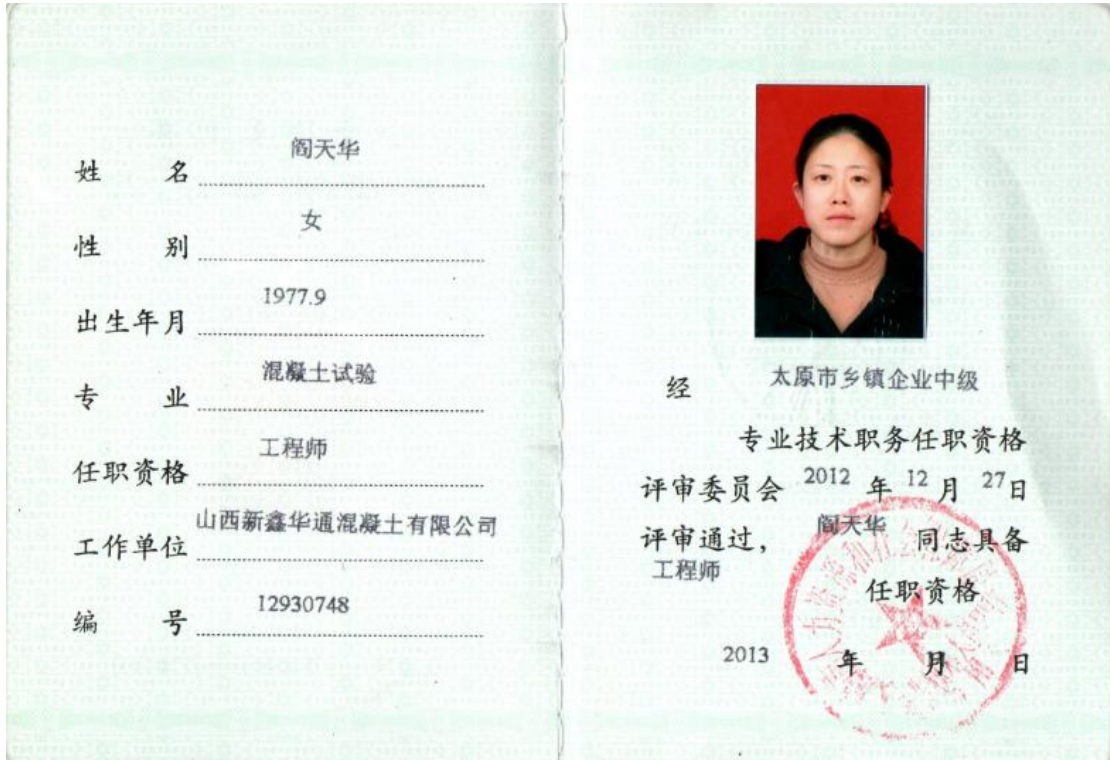 姓名 阎天华
性别 女
出生年月 1977.9
专业 混凝土试验
任职资格 工程师
工作单位 山西新鑫华通混凝土有限公司
编号 12930748
经 太原市乡镇企业中级
专业技术职务任职资格
评审委员会 2012 年 12 月 27 日
评审通过， 阎天华 同志具备
工程师
任职资格
2013 年 月 日